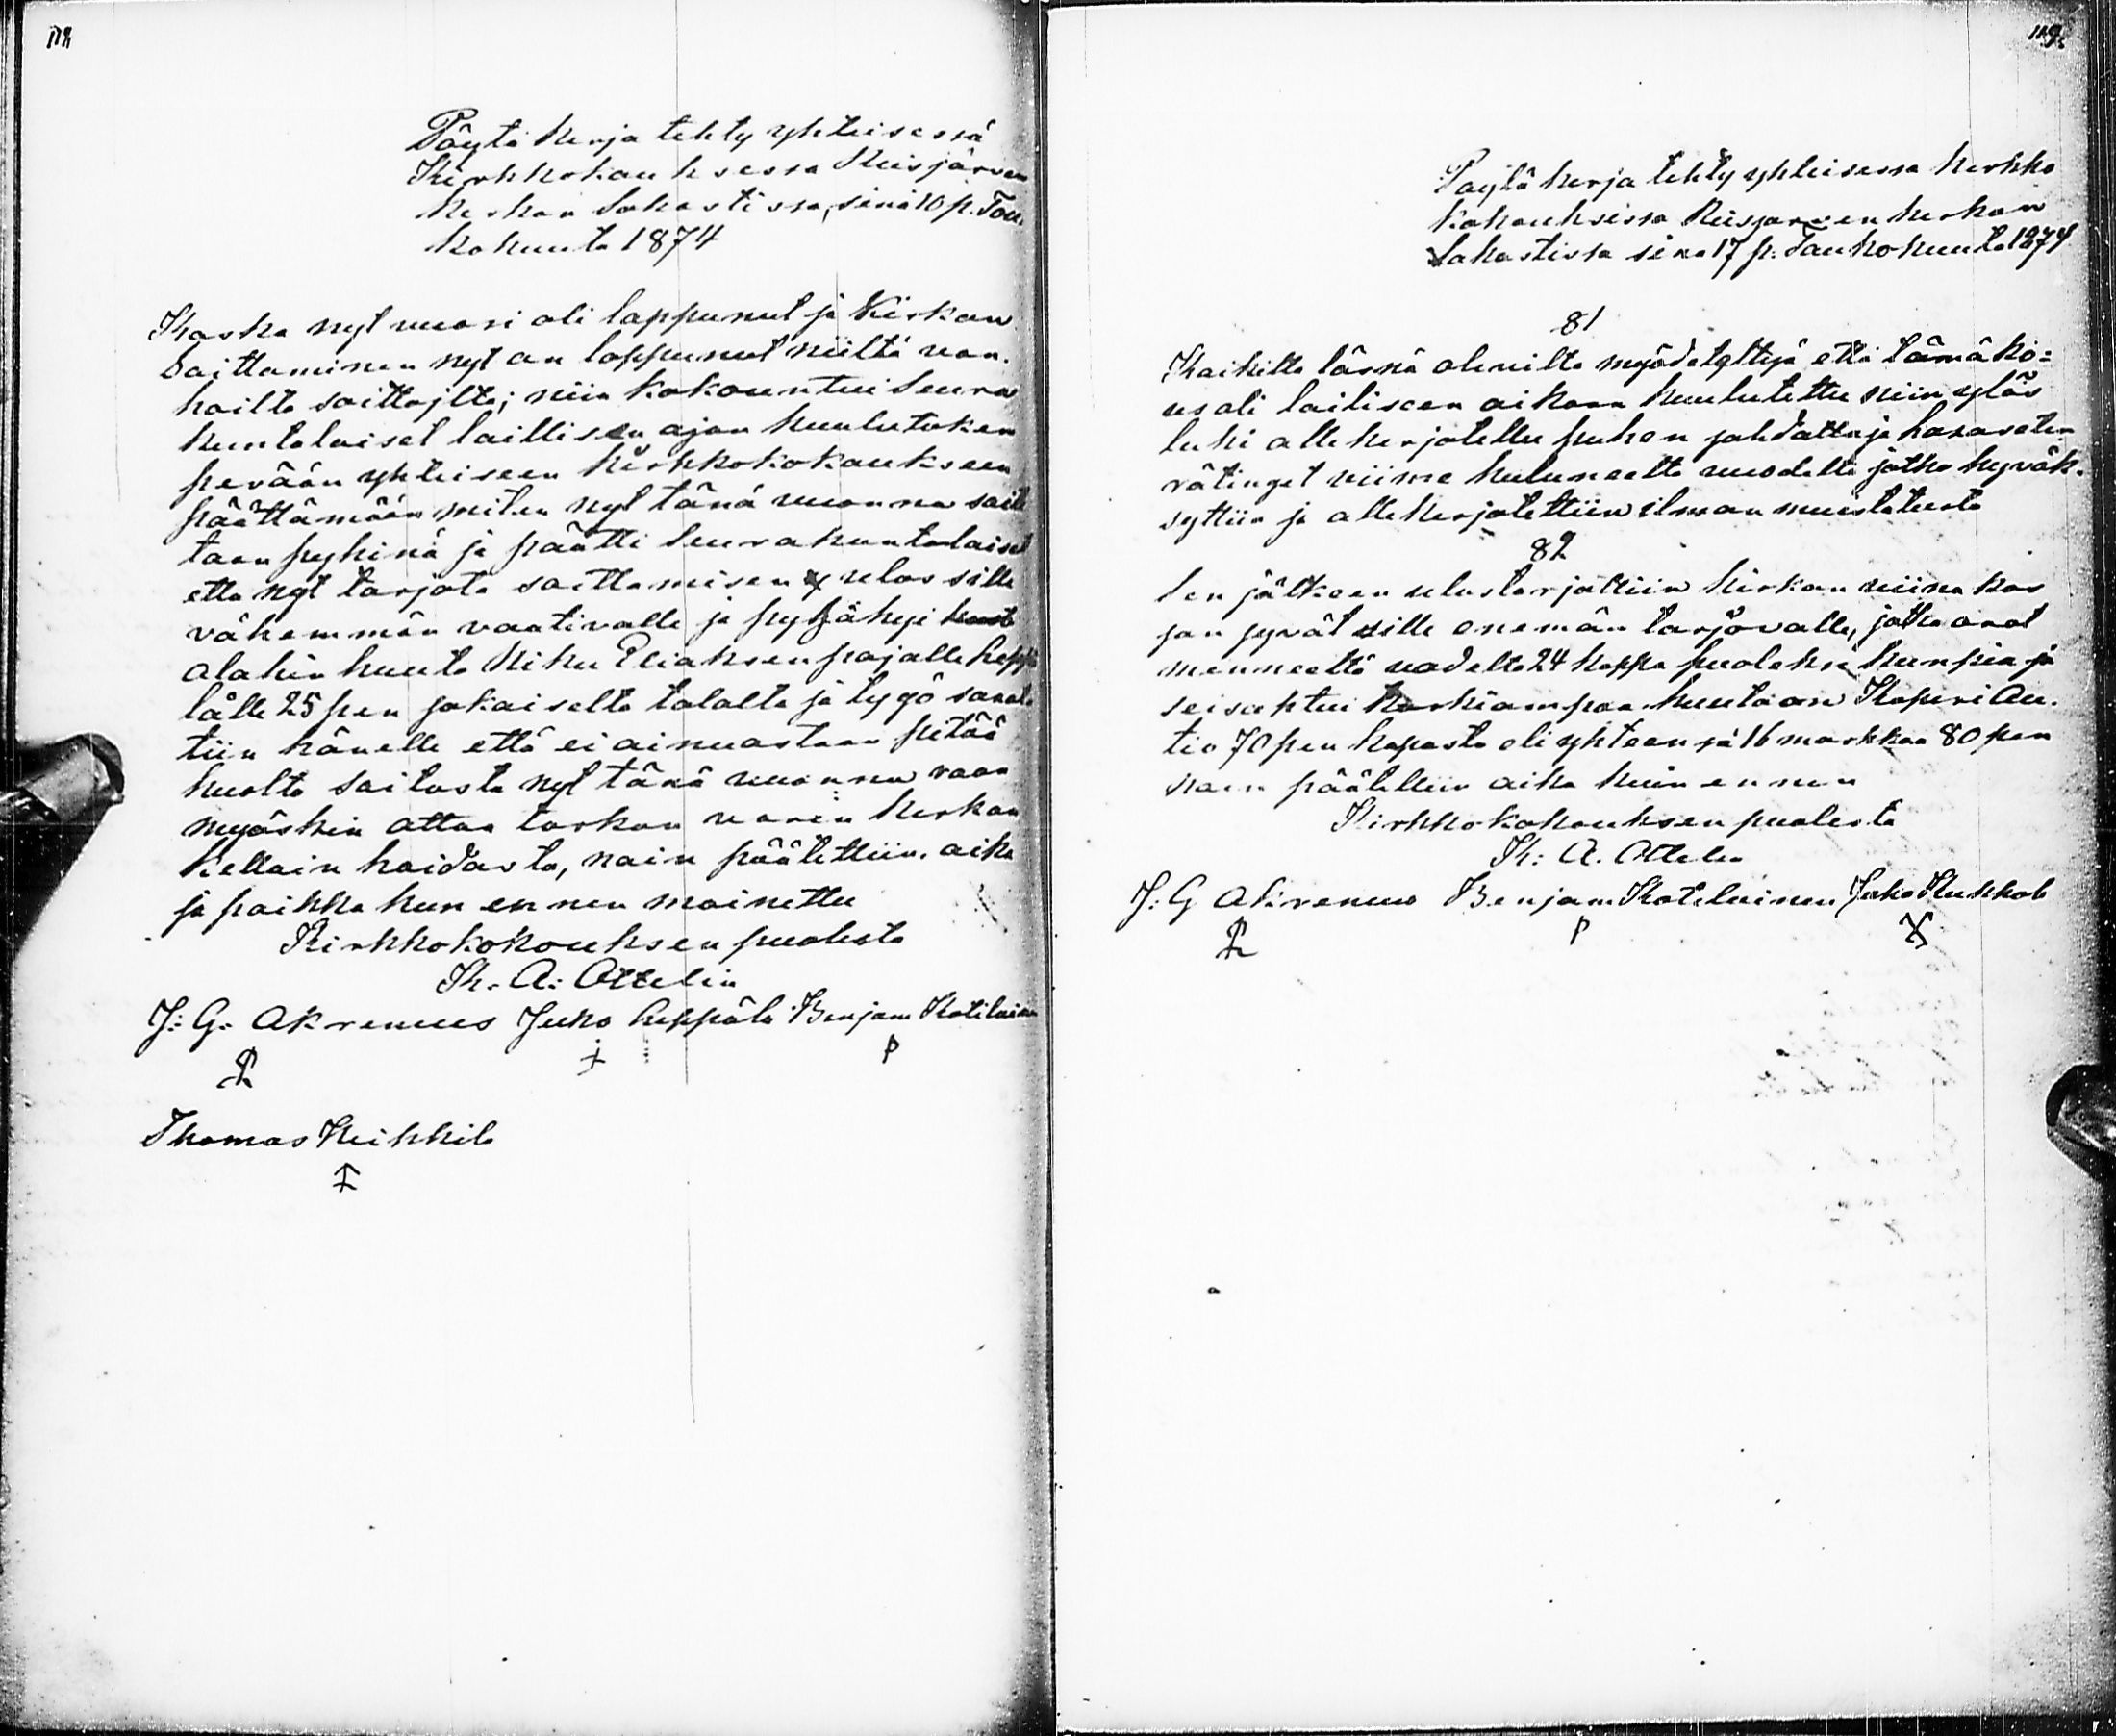 118
Pöytä kerja tehty yhteisessä
Kirkkokouksessa Reisjärven
kerkon Sakastissa, sinä 10 p. Tou-
kokuuta 1874
Koska nyt vuosi oli loppunut ja Kirkon
Soittaminen nyt on loppunut niiltä van-
hoilta soittajilta; niin kokountui Seura
kuntalaiset laillisen ajan kuulutuksen
perään yhteiseen kirkkokokoukseen
päättämään miten nyt tänä vuonna soite
taan pyhinä ja päätti Seurakuntalaiset
etta nyt tarjota soittamisen ulos sille
vähemmän vaativalle ja pysähyi
alahin huuto Niku Eliaksen pojalle Leppä
lälle 25 pen jokaiselta talolta ja tygö sanot
tiin hänelle että ei ainuastaan pitää
huolta soitosta nyt tänä vuonna vaan
myöskin ottaa tarkan vaarin kerkon
Kellain hoidosta, näin päätettiin. aika
ja paikka kun ennen mainettu
Kirkkokokouksen puolesta
K. A. Ottelin
J. G. Akrenius Juho Leppälä Benjam Kotilainen
Thomas Keikkilä
119
Paytä kerja tehty yhteisessa kerkko
kokouksissa Reisjarven kerkon
Sakastissa sina 17 p. Toukokuuta 1874
81
Kaikilta läsnä olevilta myödeteltyä että tämä ko=
us oli lailiseen aikaan kuulutettu niin ylös
luki allekerjotettu puhen johdattaja kasaseten
rätinget viime kuluneelta vuodelta jotka hyväk-
syttiin ja allekerjotettiin ilman muistutusta
82
Sen jälkeen ulostarjottiin kirkon viina kas
san jyvät sille enemän tarjovalle, jotka ovat
menneeltä vuodelta 24 kappa puoleksi kunpia ja
seisahtui korkiampaa huutoon Kaperi Au-
tio 70 pen kapasta eli yhteensä 16 markkaa 80 pen
näin päätettiin aika kuin ennen
Kirkkokokouksen puolesta
K: A. Ottelin
J: G Akrenius Benjam Kotilainen Juho Kukkola